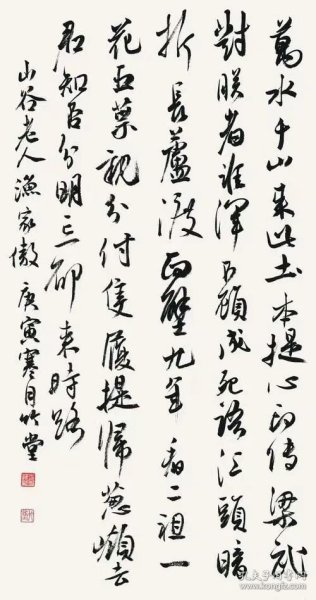 萬水千山来此土本提心印傳梁武
對朕者誰渾不顧成死語江頭暗
折長蘆渡面壁九年看二祖一
花五葉親分付隻履提歸蔥嶺去
君知否分明忘卻来時路
山谷老人漁家傲 庚寅寒月竹堂